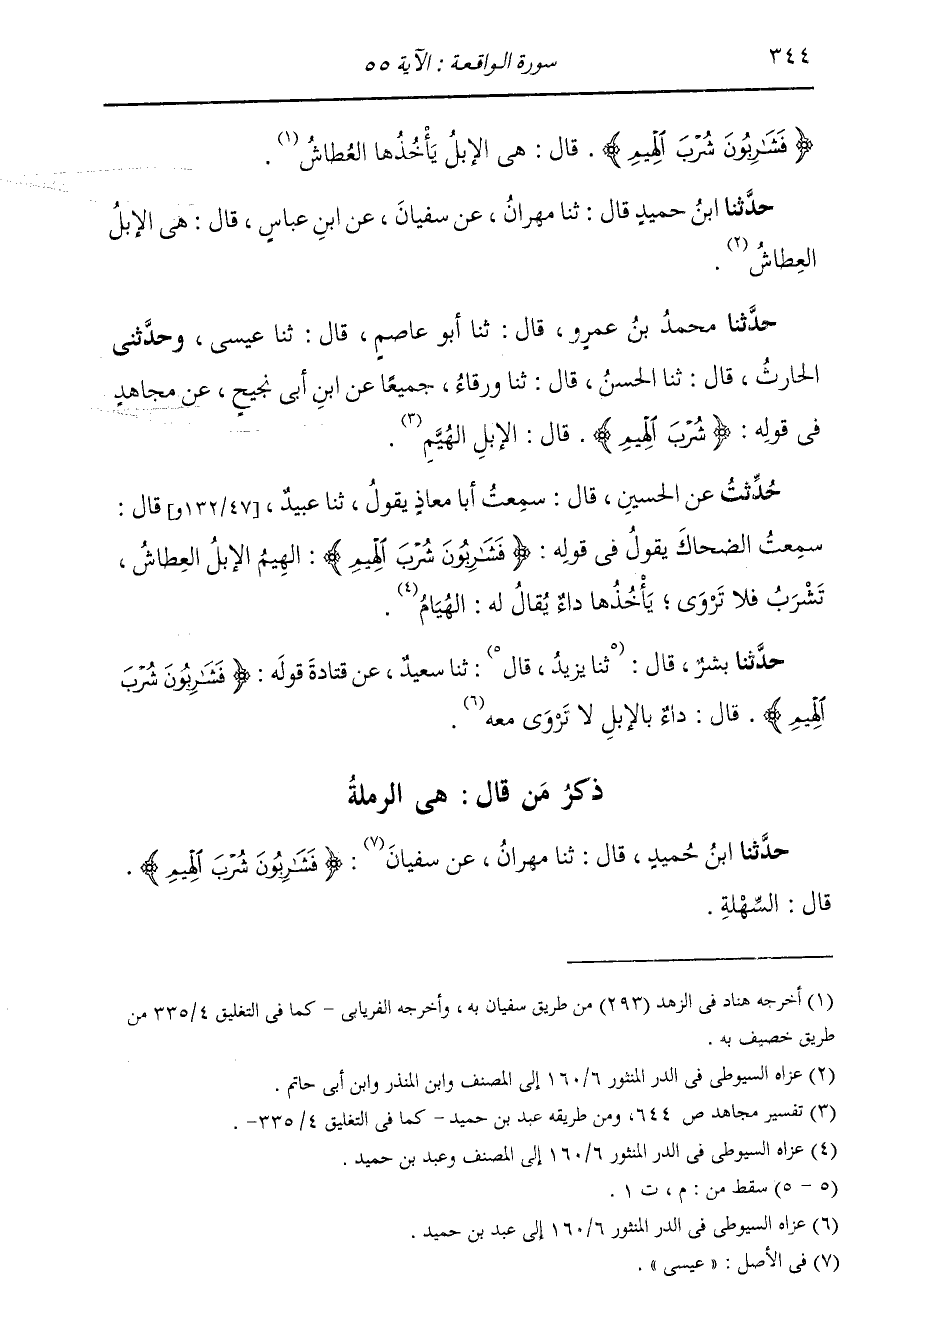 ٣٤٤
سورة الواقعة : الآية ٥٥
﴿ فَشَٰرِبُونَ شُرْبَ ٱلْهِيمِ ﴾ . قال : هى الإبلُ يَأْخُذُها العُطاشُ(١) .
حدَّثنا ابنُ حميدٍ قال : ثنا مهرانُ ، عن سفيانَ ، عن ابنِ عباسٍ ، قال : هى الإبلُ
العِطاشُ(٢) .
حدَّثنا محمدُ بنُ عمرٍو ، قال : ثنا أبو عاصمٍ ، قال : ثنا عيسى ، وحدَّثنى
الحارثُ ، قال : ثنا الحسنُ ، قال : ثنا ورقاءُ ، جميعًا عن ابنِ أبى نجيحٍ ، عن مجاهدٍ
فى قولِه : ﴿ شُرْبَ ٱلْهِيمِ ﴾ . قال : الإبلِ الهُيَّمِ(٣) .
حُدِّثتُ عن الحسينِ ، قال : سمِعتُ أبا معاذٍ يقولُ ، ثنا عبيدٌ ، [١٣٢/٤٧و] قال :
سمِعتُ الضحاكَ يقولُ فى قولِه : ﴿ فَشَٰرِبُونَ شُرْبَ ٱلْهِيمِ ﴾ : الهِيمُ الإبلُ العِطاشُ ،
تَشْرَبُ فلا تَرْوَى ؛ يَأْخُذُها داءٌ يُقالُ له : الهُيَامُ(٤) .
حدَّثنا بشرٌ ، قال : (٥ثنا يزيدُ ، قال٥) : ثنا سعيدٌ ، عن قتادةَ قولَه : ﴿ فَشَٰرِبُونَ شُرْبَ
ٱلْهِيمِ ﴾ . قال : داءٌ بالإبلِ لا تَرْوَى معه(٦) .
ذكرُ مَن قال : هى الرملةُ
حدَّثنا ابنُ حُميدٍ ، قال : ثنا مهرانُ ، عن سفيانَ(٧) : ﴿ فَشَٰرِبُونَ شُرْبَ ٱلْهِيمِ ﴾ .
قال : السِّهْلةِ .
(١) أخرجه هناد فى الزهد (٢٩٣) من طريق سفيان به ، وأخرجه الفريابى - كما فى التغليق ٣٣٥/٤ من
طريق خصيف به .
(٢) عزاه السيوطى فى الدر المنثور ١٦٠/٦ إلى المصنف وابن المنذر وابن أبى حاتم .
(٣) تفسير مجاهد ص ٦٤٤، ومن طريقه عبد بن حميد - كما فى التغليق ٤/ ٣٣٥- .
(٤) عزاه السيوطى فى الدر المنثور ١٦٠/٦ إلى المصنف وعبد بن حميد .
(٥ - ٥) سقط من : م ، ت ١ .
(٦) عزاه السيوطى فى الدر المنثور ١٦٠/٦ إلى عبد بن حميد .
(٧) فى الأصل : « عيسى » .